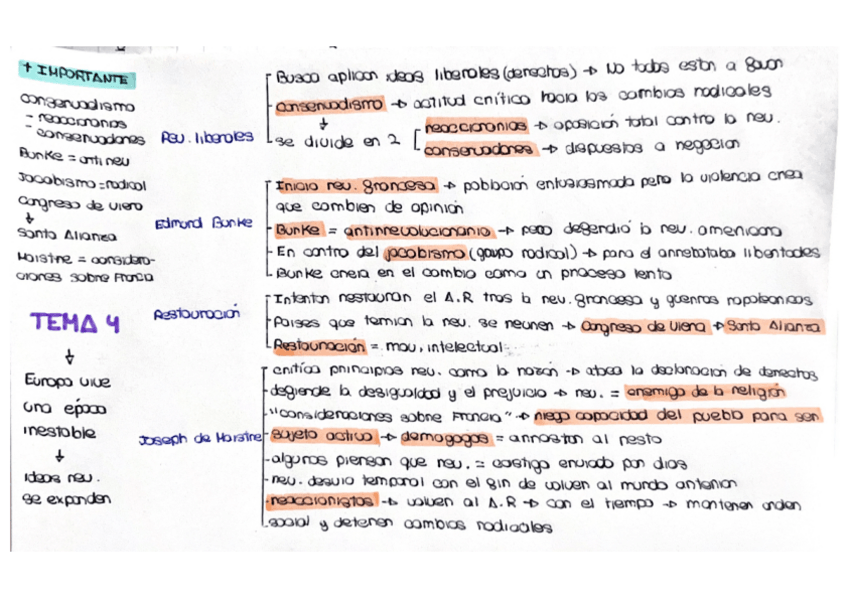 + IMPORTANTE
conservadismo
- reaccionarios
- conservadores
Burke = anti rev
Jacobismo = radical
Congreso de Viena
↓
Santa Alianza
Maistre = considera-
ciones sobre Francia
TEMA 4
↓
Europa vive
una época
inestable
↓
Ideas rev.
se expanden
Rev. liberales
Busca aplicar ideas liberales (derechos) → No todos están a favor
conservadismo → actitud crítica hacia los cambios radicales
↓
se divide en 2
reaccionarios → oposición total contra la rev.
conservadores → dispuestos a negociar
Edmund Burke
Inicio rev. francesa → población entusiasmada pero la violencia crea
que cambien de opinión
Burke = antirrevolucionario → pero defendió la rev. americana
En contra del jacobismo (grupo radical) → para el arrebataba libertades
Burke creía en el cambio como un proceso lento
Restauración
Intentan restaurar el A.R tras la rev. francesa y guerras napoleónicas
Países que temían la rev. se reúnen → Congreso de Viena → Santa Alianza
Restauración = mov, intelectual
Joseph de Maistre
crítica principios rev. como la razón → ataca la declaración de derechos
-defiende la desigualdad y el prejuicio → rev. = enemigo de la religión
-"Consideraciones sobre Francia" → niega capacidad del pueblo para ser
sujeto activo → demagogos = arrastran al resto
-algunos piensan que rev. = castigo enviado por dios
-rev. desvío temporal con el fin de volver al mundo anterior
-reaccionistas → volver al A.R → con el tiempo → mantener orden
social y detener cambios radicales